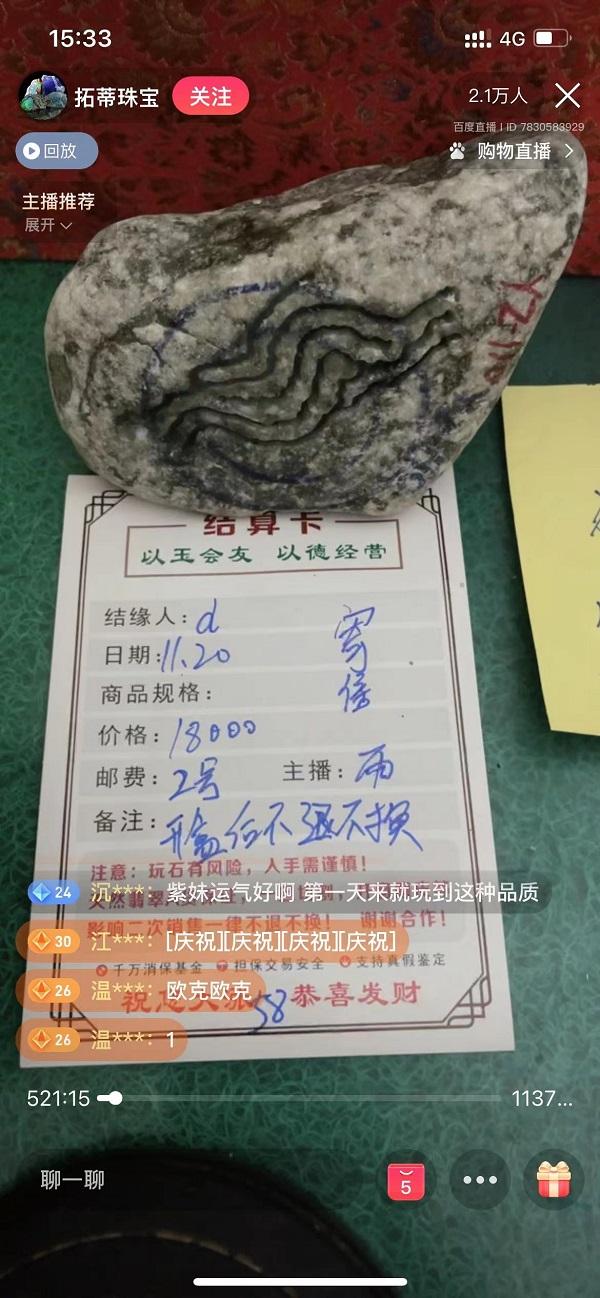 15:33
4G
拓蒂珠宝
关注
2.1万人
百度直播 | ID 7830583929
回放
购物直播
主播推荐
展开
YZ-116
结算卡
以玉会友 以德经营
结缘人: d
日期: 11.20
寄
商品规格:
价格: 18000
邮费: 2号
主播: 雨
备注: 开盒后不退不换
注意: 玩石有风险, 人手需谨慎!
影响二次销售一律不退不换! 谢谢合作!
24 沉***: 紫妹运气好啊 第一天来就玩到这种品质
30 江***: [庆祝][庆祝][庆祝][庆祝]
千万消保基金 担保交易安全 支持真假鉴定
26 温***: 欧克欧克
58
恭喜发财
26 温***: 1
521:15
1137...
聊一聊
5